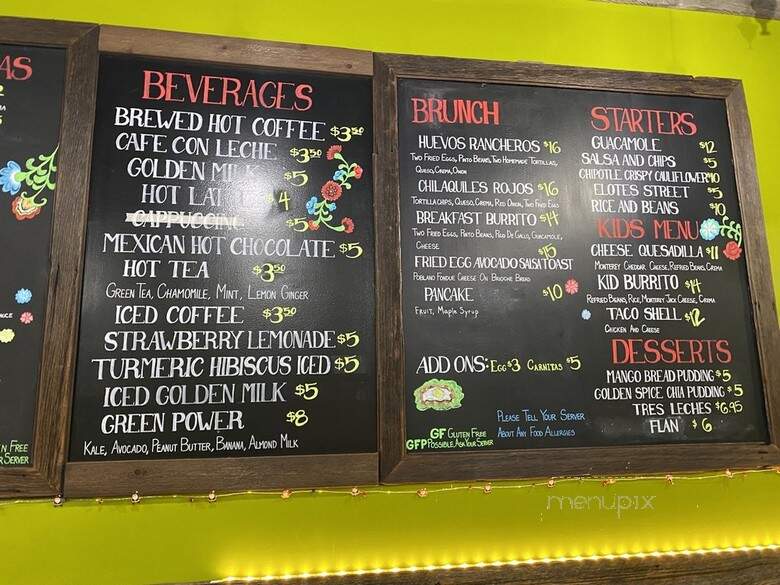 AS
N FREE
R SERVER
BEVERAGES
BREWED HOT COFFEE $3.50
CAFE CON LECHE $3.50
GOLDEN MILK $5
HOT LAT $4
CAPPUCCINO $5
MEXICAN HOT CHOCOLATE $5
HOT TEA $3.50
GREEN TEA, CHAMOMILE, MINT, LEMON GINGER
ICED COFFEE $3.50
STRAWBERRY LEMONADE $5
TURMERIC HIBISCUS ICED $5
ICED GOLDEN MILK $5
GREEN POWER $8
KALE, AVOCADO, PEANUT BUTTER, BANANA, ALMOND MILK
BRUNCH
HUEVOS RANCHEROS $16
TWO FRIED EGGS, PINTO BEANS, TWO HOMEMADE TORTILLAS,
QUESO, CREMA, ONION
CHILAQUILES ROJOS $16
TORTILLA CHIPS, QUESO, CREMA, RED ONION, TWO FRIED EGGS
BREAKFAST BURRITO $14
TWO FRIED EGGS, PINTO BEANS, PICO DE GALLO, GUACAMOLE,
CHEESE
$15
FRIED EGG AVOCADO SALSA TOAST
POBLANO FONDUE CHEESE ON BRIOCHE BREAD
PANCAKE $10
FRUIT, MAPLE SYRUP
ADD ONS: EGG $3 CARNITAS $5
GF GLUTEN FREE
GFP POSSIBLE, ASK YOUR SERVER
PLEASE TELL YOUR SERVER
ABOUT ANY FOOD ALLERGIES
STARTERS
GUACAMOLE $12
SALSA AND CHIPS $5
CHIPOTLE CRISPY CAULIFLOWER $10
ELOTES STREET $5
RICE AND BEANS $10
KIDS MENU
CHEESE QUESADILLA $11
MONTEREY CHEDDAR CHEESE, REFRIED BEANS, CREMA
KID BURRITO $14
REFRIED BEANS, RICE, MONTEREY JACK CHEESE, CREMA
TACO SHELL $12
CHICKEN AND CHEESE
DESSERTS
MANGO BREAD PUDDING $5
GOLDEN SPICE CHIA PUDDING $5
TRES LECHES $6.95
FLAN $6
menupix